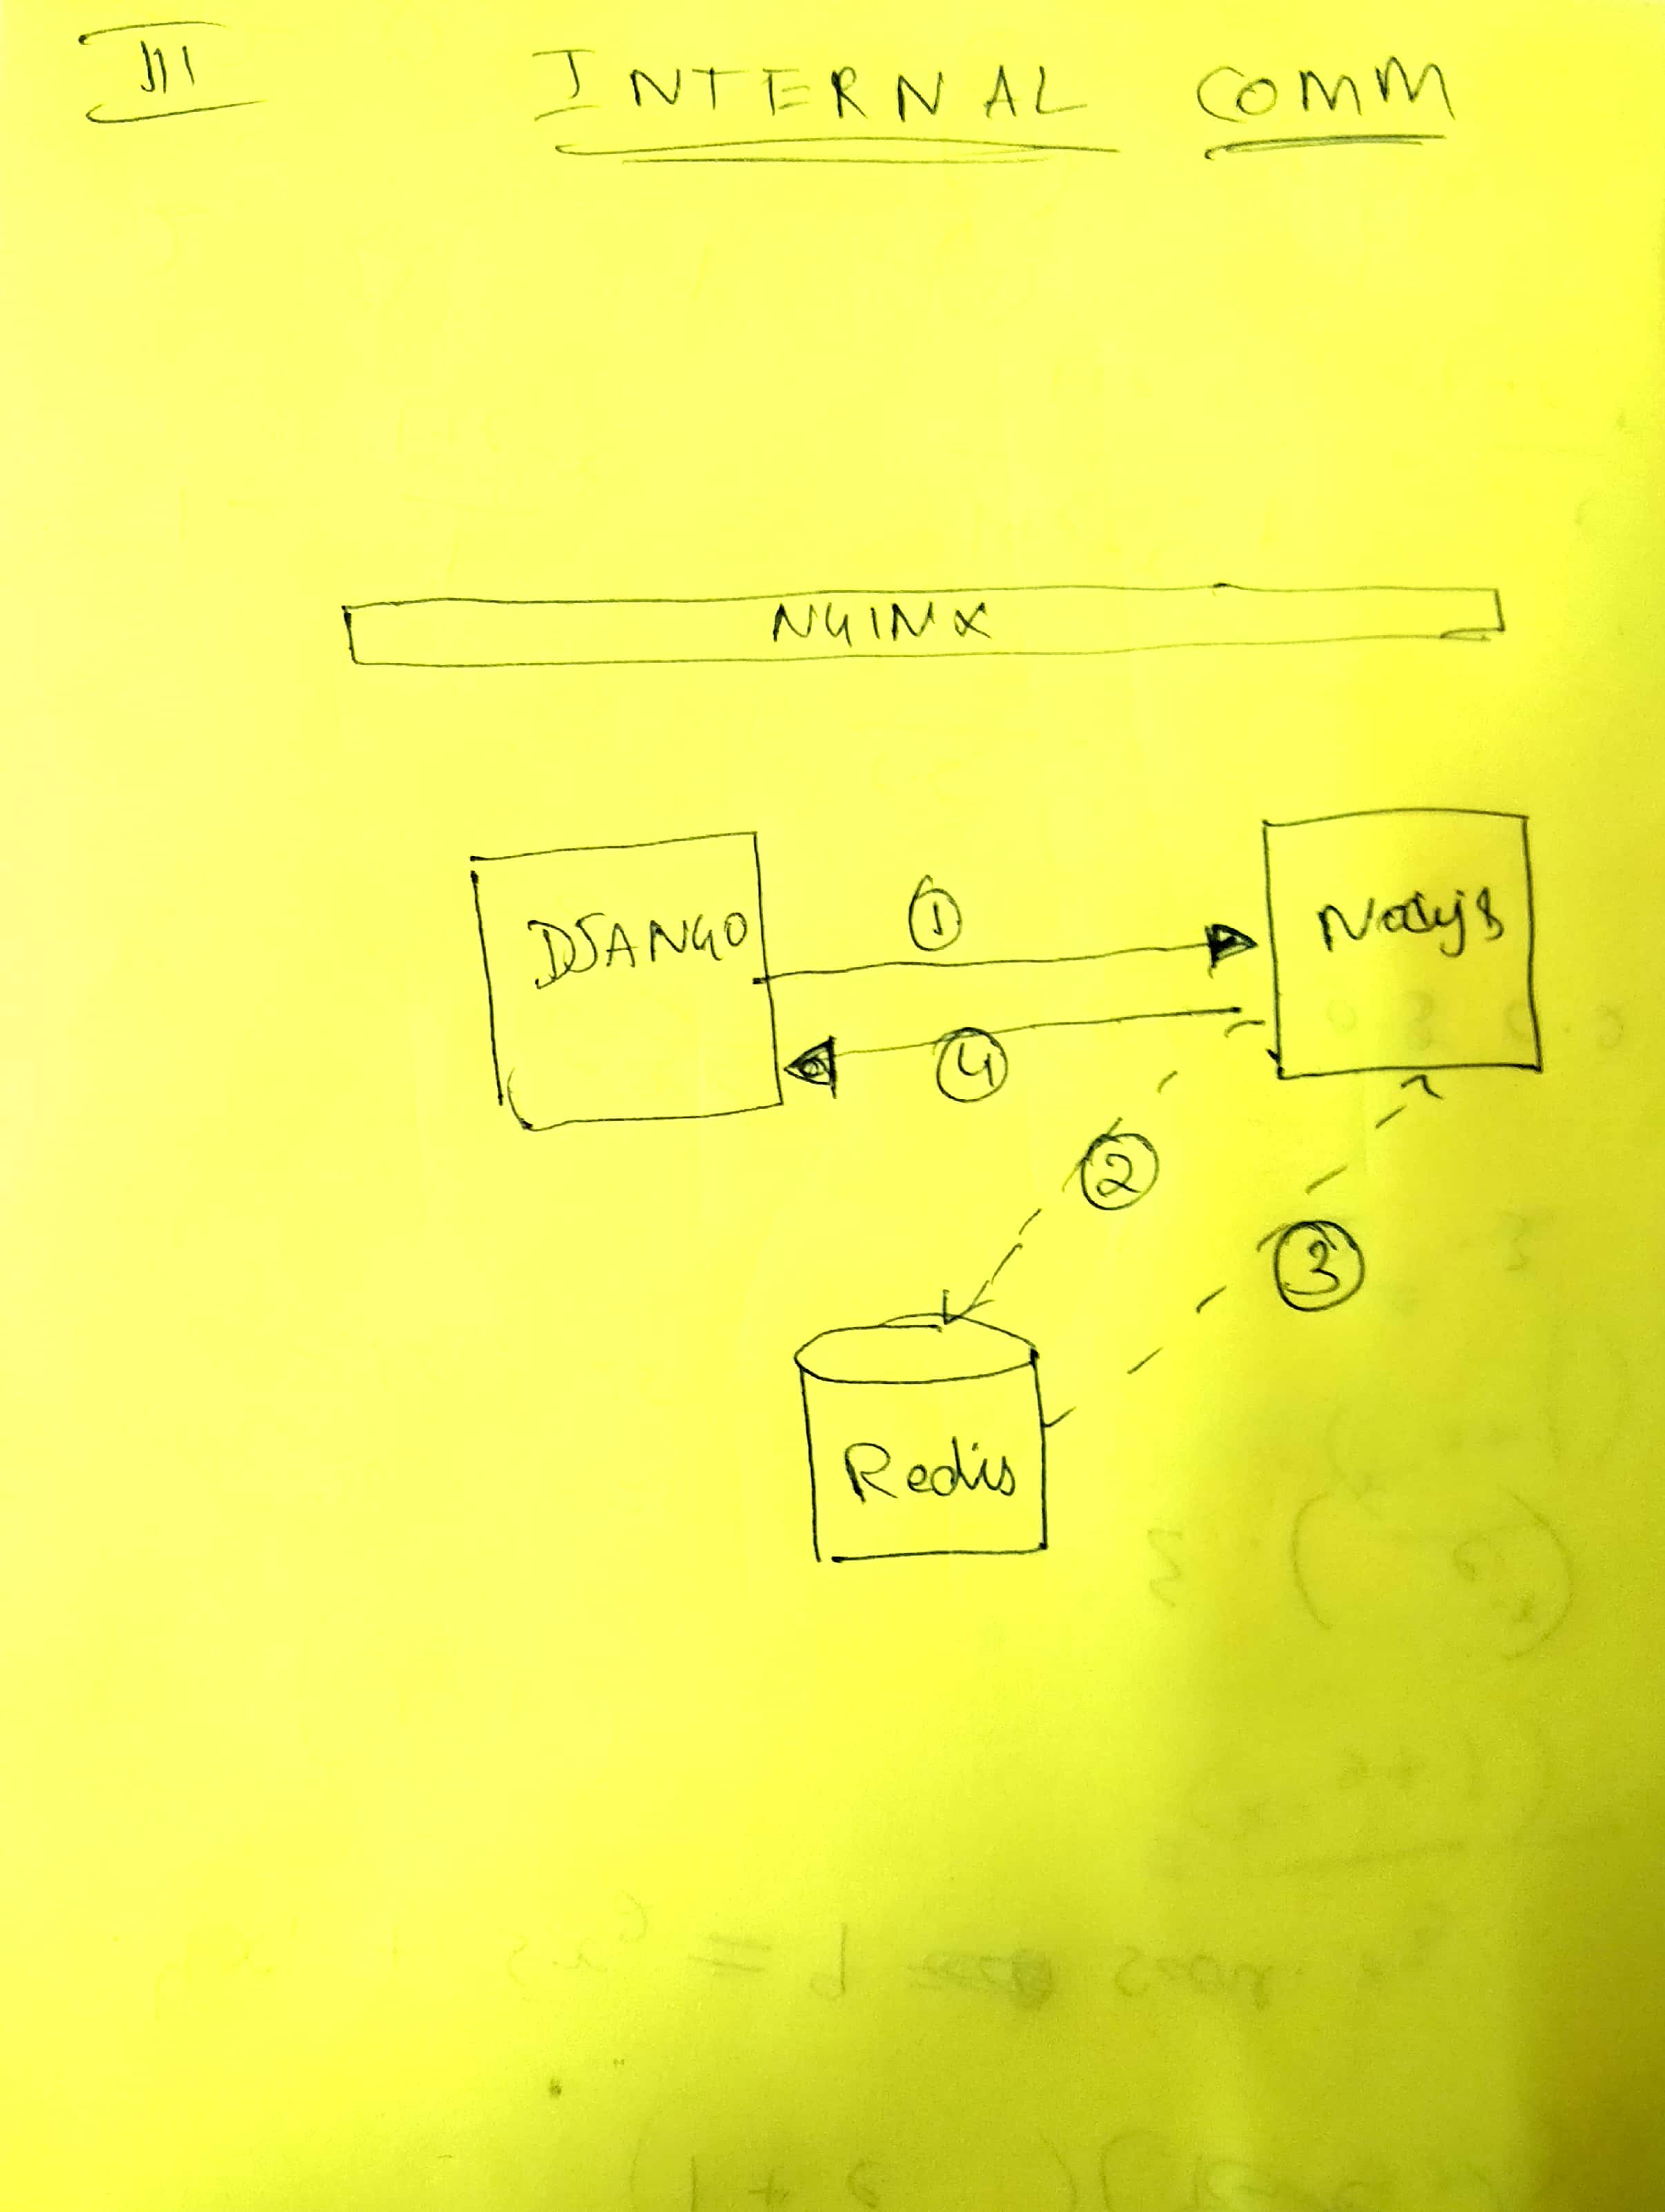 III
INTERNAL COMM
NGINX
DJANGO
1
Nodejs
4
2
3
Redis